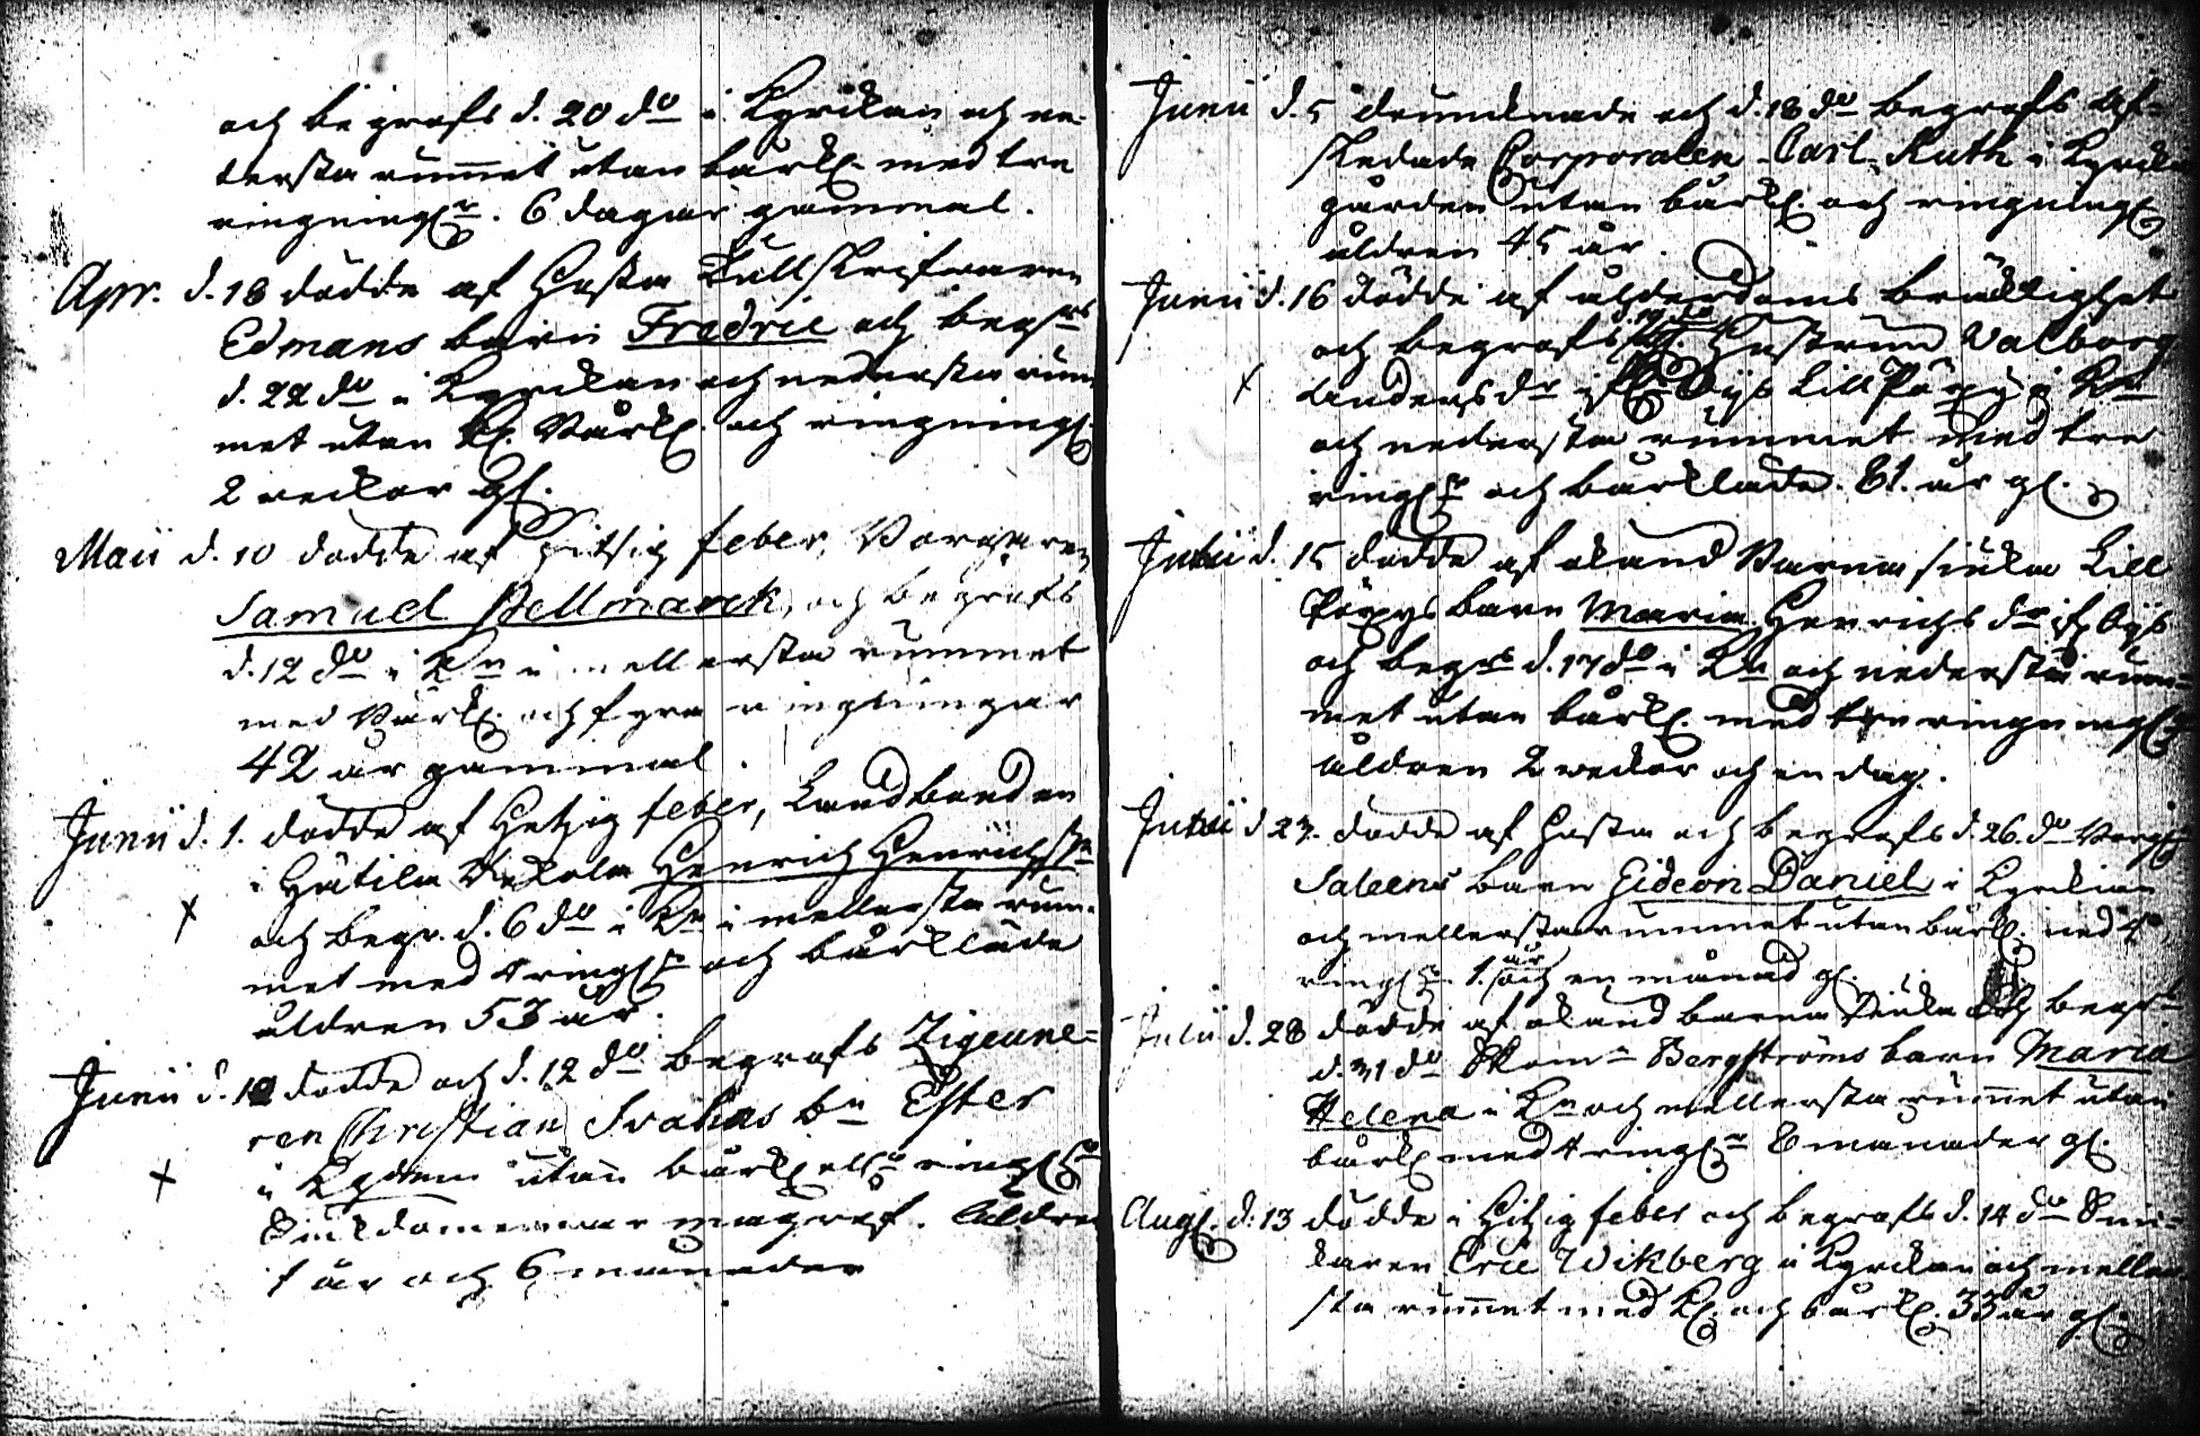 och begrofs d. 20 do i Kyrckan och ne-
dersta rummet utan bårkl. med tre
ringningr. 6 dagar gammal.
Apr. d. 18 dödde af Hosta Tullskrifvaren
Edmans barn Fredric och begrs
d. 22 do i Kyrckan och nedersta rum
met utan Kl. Bårkl. och ringning.
2 veckor gl.
Maii d. 10 dödde af Hitsig feber, Borgaren
Samuel Pellmarck, och begrofs
d. 12 do i Kn i mellersta rummet
med Bårkl. och fyra ringningar
42 år gammal.
Junii d. 1. dödde af Hetzig feber, Landbonden
i Hätilä Henrich Henrichssn
och begr. d. 6 do i Kn i mellersta rum-
met med 4 ringr och bårkläde
åldren 53 år.
Junii d. dödde och d. 12 do begrofs Zigeune-
ren Christian bn Ester
i utan bårkl. elr ringr
Siukdomen var Åldren
1 år och 6 månader
Junii d. 5 drunknade och d. 18 do begrofs Af-
skedade Corporalen Carl Ruth i Kyrcko
gården utan bårkl. och ringning
åldren 45 år.
Junii d. 16 dödde af ålderdoms bräcklighet
och begrofs d. 19 do Hustrun Valborg
Andersdr ifr Öijs Lill Pöry i Kn
och nedersta rummet med tre
ringr och bårkläde. 81. år gl.
Julii d. 15 dödde af okänd Barna siuka Lill
Pörys barn Maria Henrichs dr ifr Öijs
och begrs d. 17 do i Kn och nedersta rum-
met utan bårkl. med tre ringningr
åldren 2 veckor och en dag.
Julii d. 23. dödde af Hosta och begrofs d. 26. do Borg.
Saleens barn Gideon Daniel i Kyrckian
och mellersta rummet utan bårkl. med 4
ringr. 1. år och en månad gl.
Julii d. 28 dödde af okänd barna siuka och begrs
d. 31 do Skom. Bergströms barn Maria
Helena i Kn och mellersta rummet utan
bårkl. med 4 ringr 8 månader gl.
Aug. d. 13 dödde i Hitzig feber och begrofs d. 14 do Snic-
karen Eric Wikberg i Kyrckan och meller-
sta rummet med Kl. och bårkl. 33 år gl.